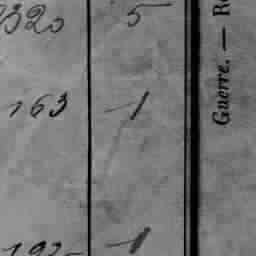 320 5
163 1
192 1
Guerre. — R